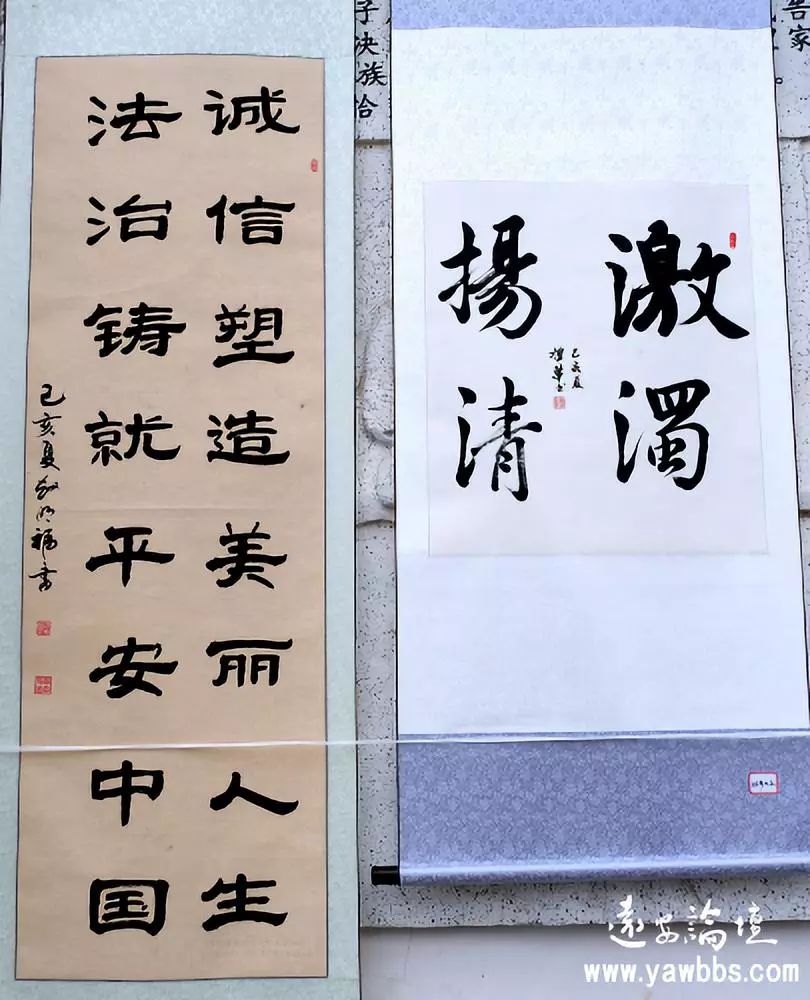 诚信塑造美丽人生
法治铸就平安中国
己亥夏
激濁
揚清
己亥夏
子决族恰
告家
遠安論壇
www.yawbbs.com